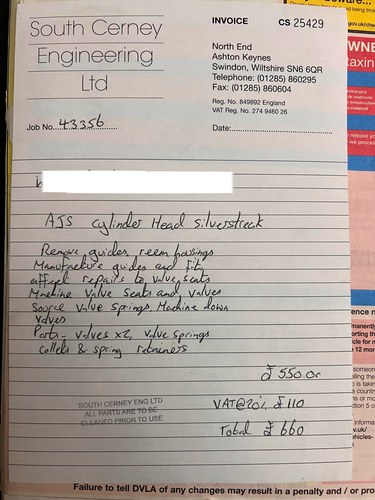 South Cerney
Engineering
Ltd
INVOICE CS 25429
North End
Ashton Keynes
Swindon, Wiltshire SN6 6QR
Telephone: (01285) 860295
Fax: (01285) 860604
Reg. No. 849892 England
VAT Reg. No. 274 9460 26
Job No. 43356
Date:
AJS Cylinder Head Silverstreak
Remove guides, reem housings
Manufacture guides and fit,
affect repairs to valve seats
Machine Valve Seats and valves
Source Valve Springs, Machine down
valves
Parts - valves x2, Valve springs
collets & spring retainers
£ 550.00
VAT@20% £110
Total £ 660
SOUTH CERNEY ENG LTD
ALL PARTS ARE TO BE
CLEANED PRIOR TO USE
Failure to tell DVLA of any changes may result in a penalty and / or pro